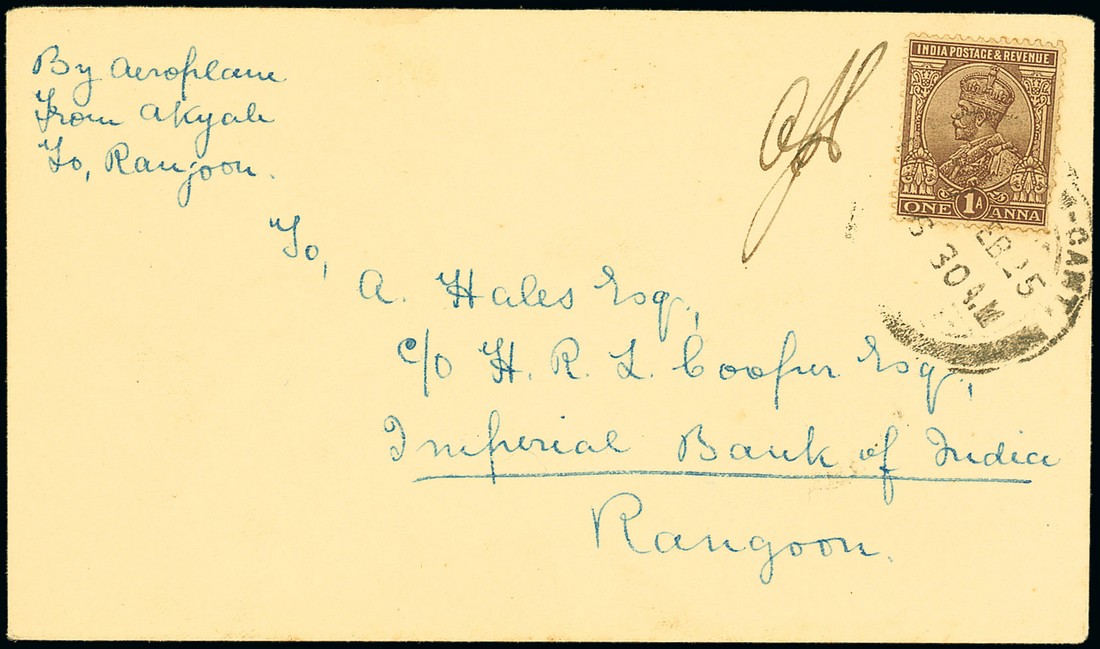 By Aeroplane
From Akyab
To, Rangoon.
INDIA POSTAGE & REVENUE
ONE 1A ANNA
M-CANT
EB. 25
30 A.M
To,
A. Hales Esq.,
c/o H. R. L. Cooper Esq.,
Imperial Bank of India
Rangoon.